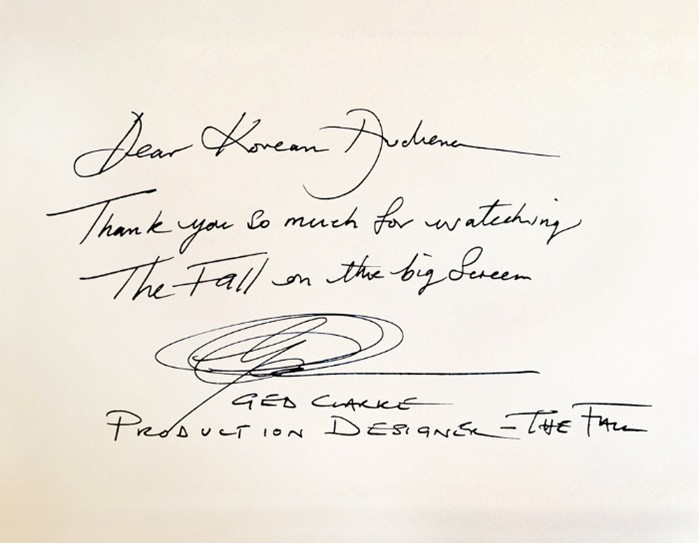 Dear Korean Audience
Thank you so much for watching
The Fall on the big Screen
GED CLARKE
PRODUCTION DESIGNER - THE FALL